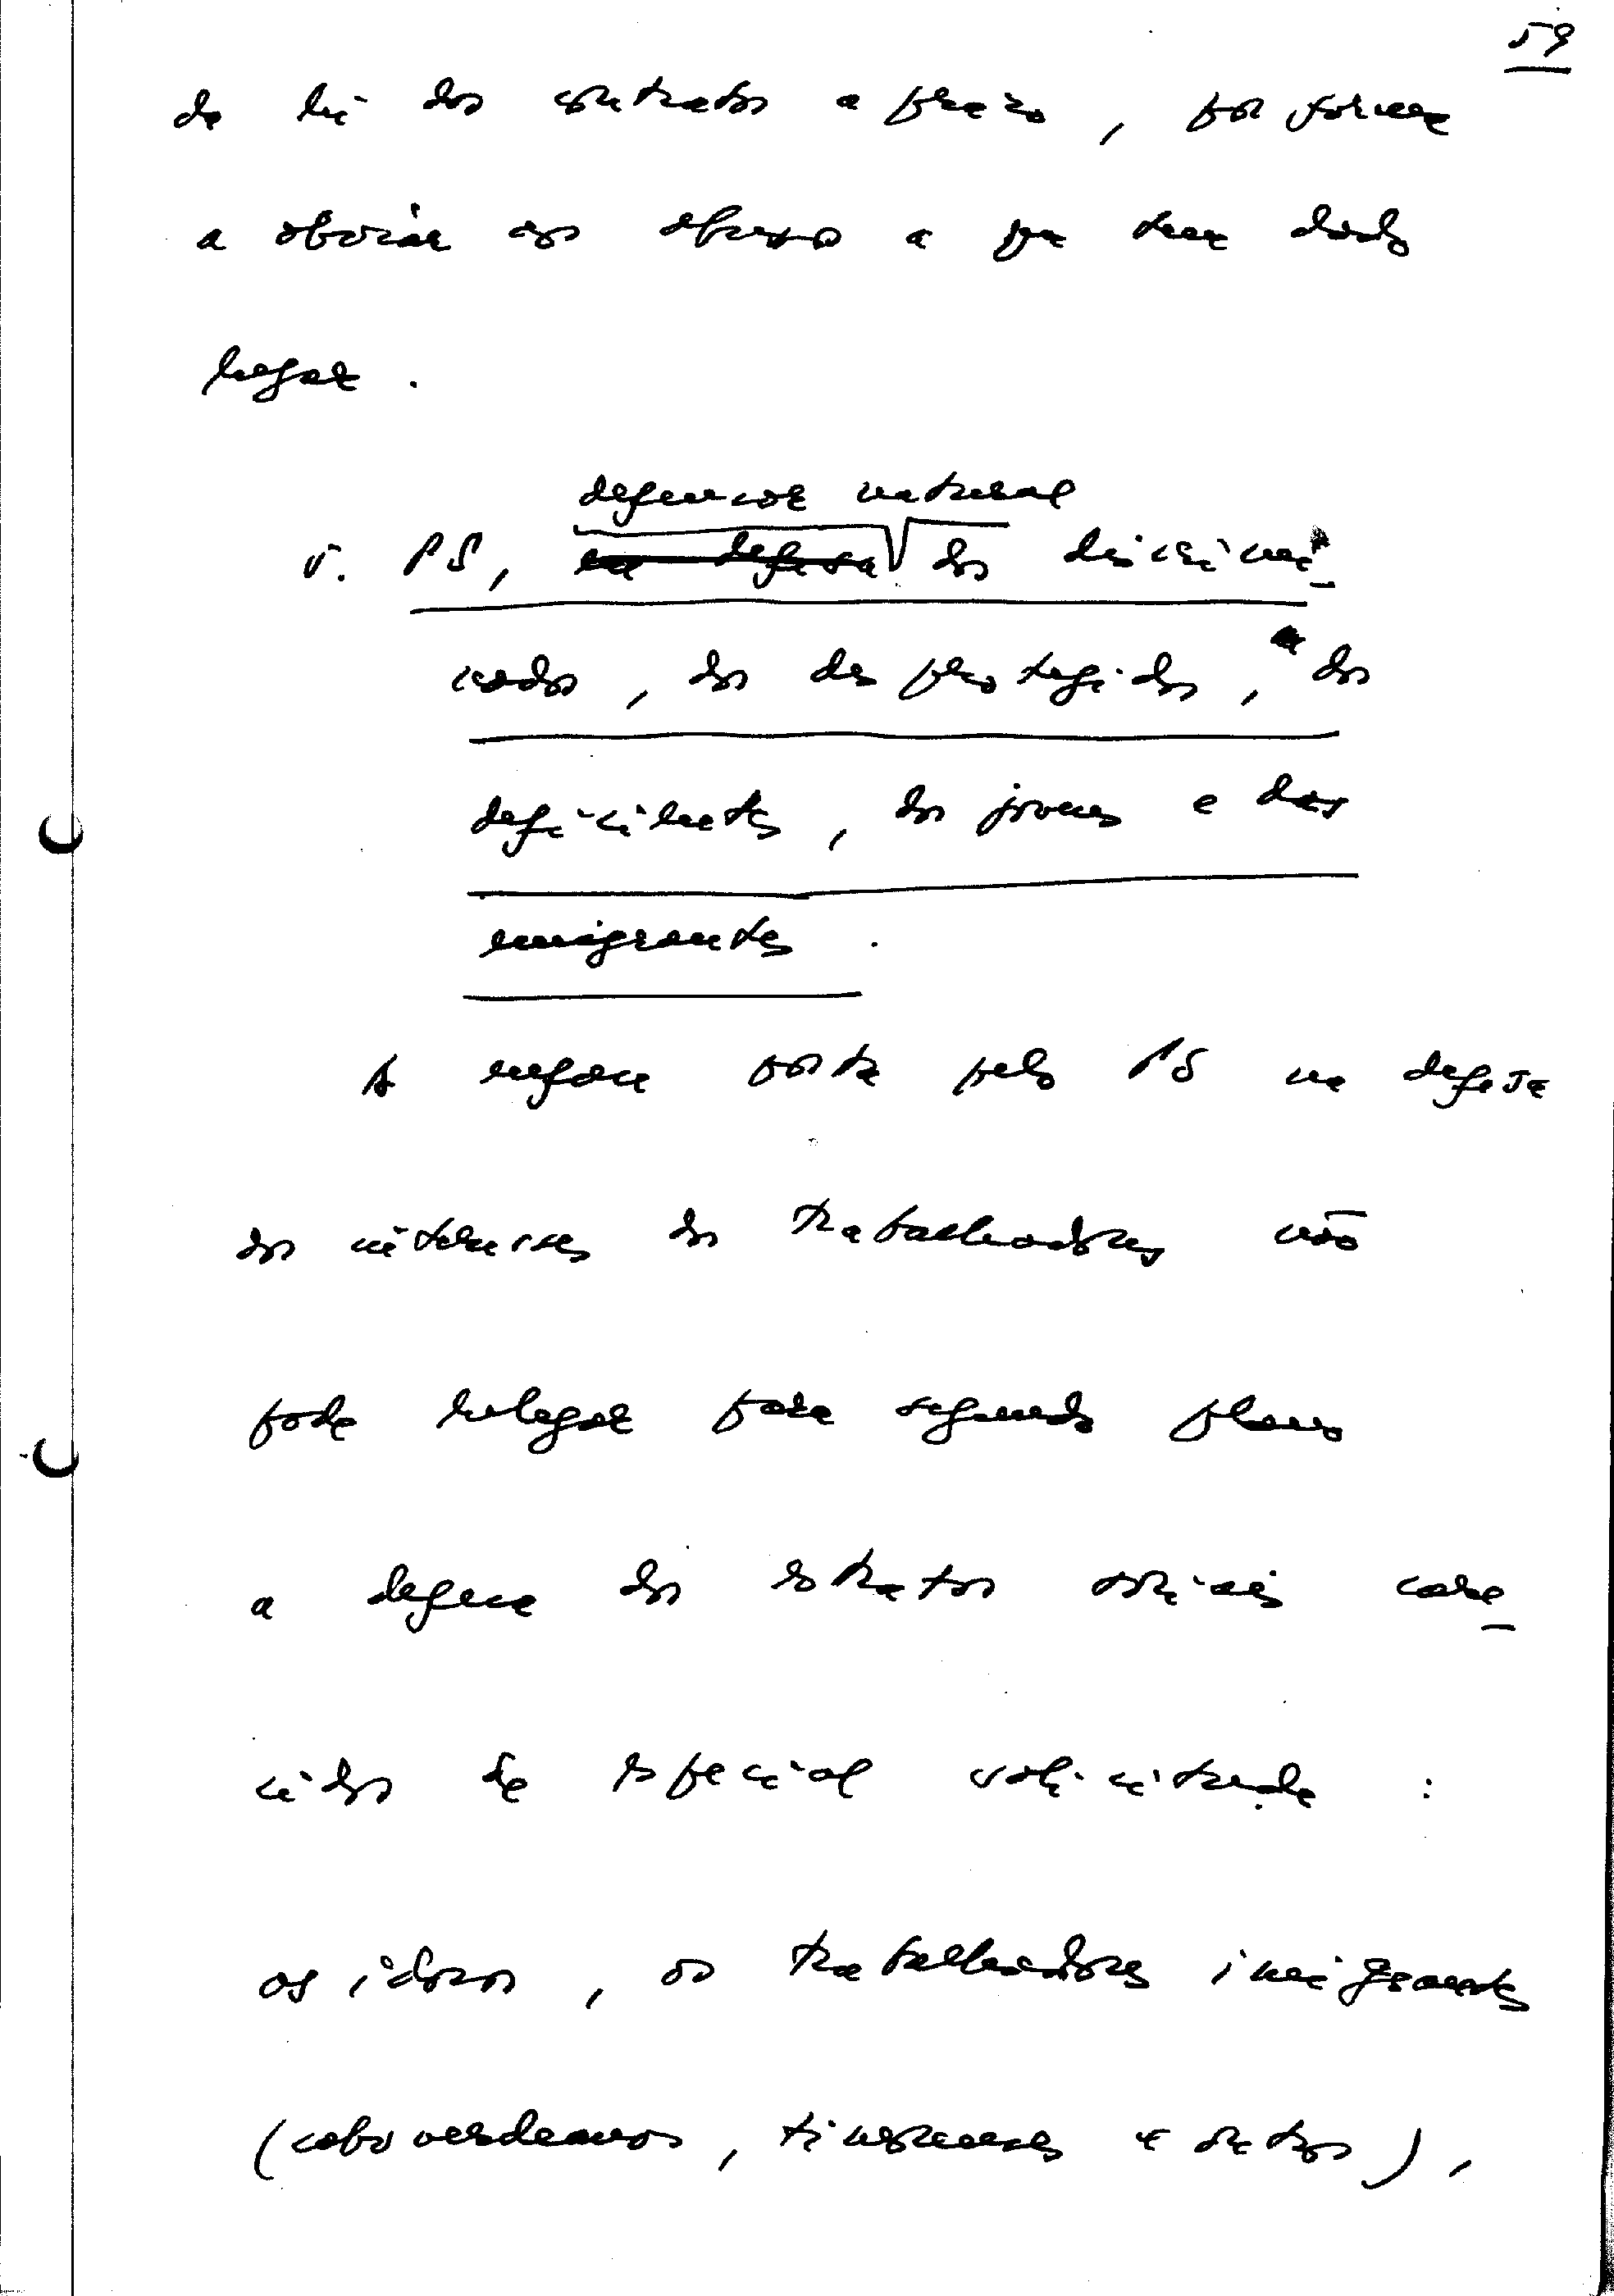 59
da lei dos contratos a prazo, por forma
a obviar aos abusos a que tem dado
lugar.
defensor natural
5. PS, na defesa dos discrimi-
nados, dos desprotegidos, dos
deficientes, dos jovens e dos
emigrantes.
A enfase posta pelo PS na defesa
dos interesses dos trabalhadores não
pode relegar para segundo plano
a defesa dos estratos sociais care-
cidos de especial solicitude:
os idosos, os trabalhadores imigrantes
(caboverdeanos, timorenses e outros),